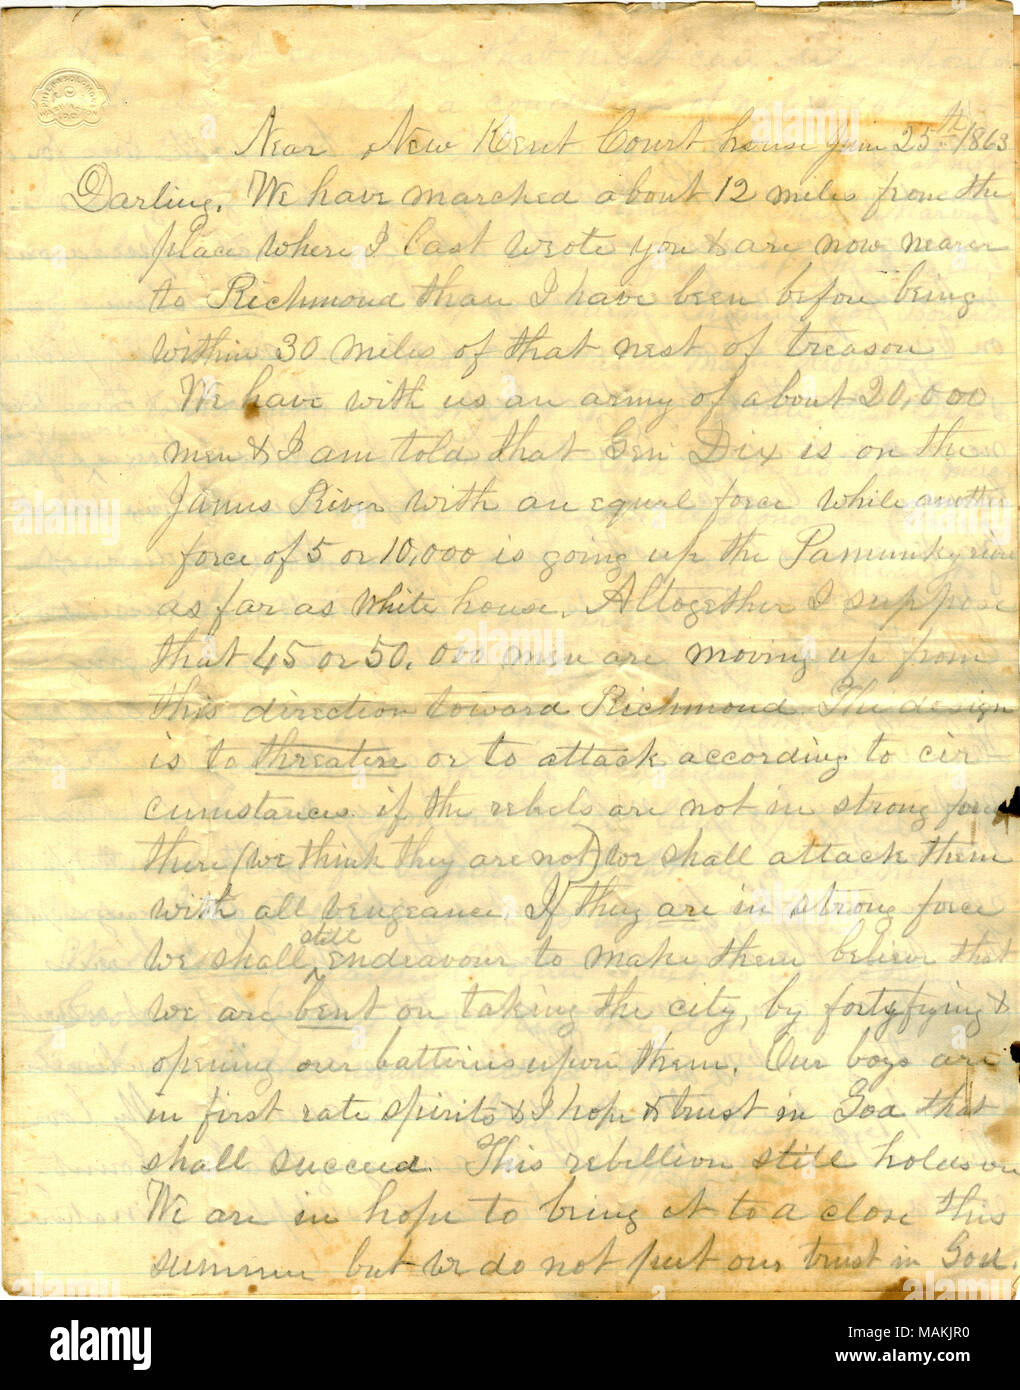 Near New Kent Court house June 25th /1863
Darling, We have marched about 12 miles from the
place where I last wrote you & are now nearer
to Richmond than I have been before being
within 30 miles of that nest of treason
We have with us an army of about 20,000
men & I am told that Gen Dix is on the
James River with an equal force while another
force of 5 or 10,000 is going up the Pamunky river
as far as White house. Altogether I suppose
that 45 or 50,000 men are moving up from
this direction toward Richmond. The design
is to threaten or to attack according to cir-
cumstances. if the rebels are not in strong force
there (we think they are not) we shall attack them
with all vengeance. If they are in strong force
we shall still endeavour to make them believe that
we are bent on taking the city, by fortyfying &
opening our batteries upon them. Our boys are
in first rate spirits & I hope & trust in God that
shall succeed. This rebellion still holds on
We are in hope to bring it to a close this
summer but we do not put our trust in God.
alamy
Image ID: MAKJR0
www.alamy.com